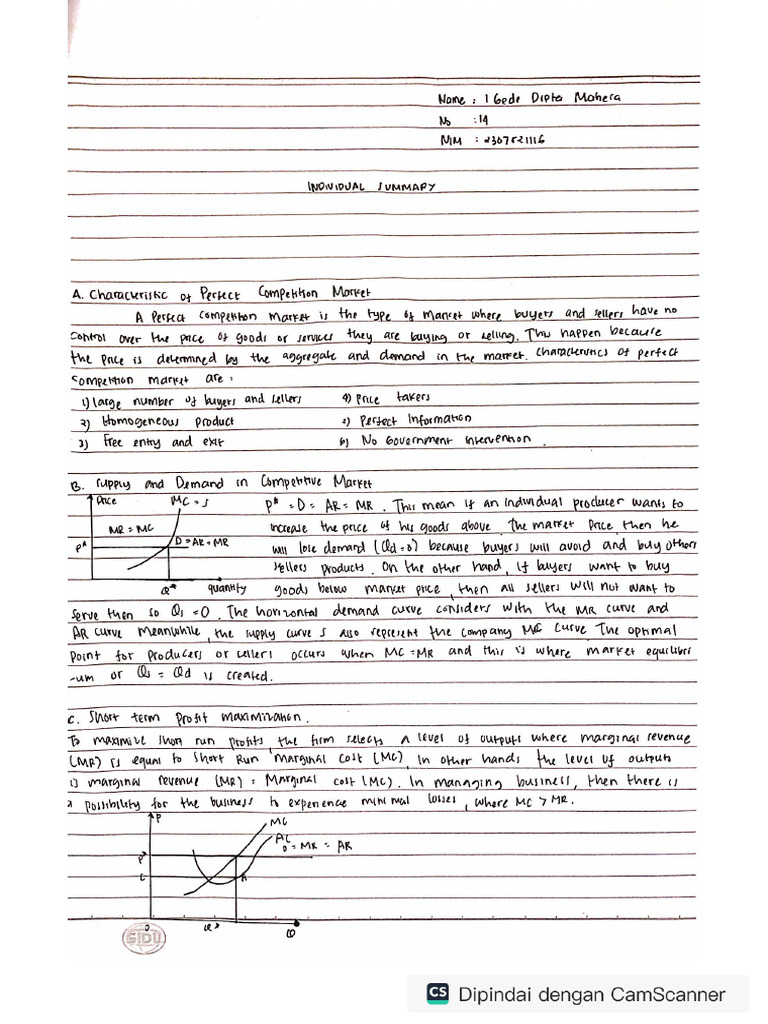 Name : I Gede Dipta Mahera
No : 14
NIM : 2307521116
INDIVIDUAL SUMMARY
A. Characteristic of Perfect Competition Market
A Perfect competition market is the type of market where buyers and sellers have no
control over the price of goods or services they are buying or selling. This happen because
the price is determined by the aggregate and demand in the market. Characteristics of perfect
competition market are :
1) large number of buyers and sellers
4) Price takers
2) Homogeneous product
5) Perfect Information
3) Free entry and exit
6) No Government Intervention.
B. Supply and Demand in Competitive Market
Price
MC = S
MR = MC
P*
D = AR = MR
Q*
quantity
P* = D = AR = MR. This mean if an individual producer wants to
increase the price of his goods above the market price then he
will lose demand (Qd=0) because buyers will avoid and buy others
sellers products. On the other hand, if buyers want to buy
goods below market price, then all sellers will not want to
serve then so Qs = 0. The horizontal demand curve considers with the MR curve and
AR curve Meanwhile, the supply curve s also represent the company MC curve The optimal
point for producers or sellers occurs when MC = MR and this is where market equilibri
-um or Qs = Qd is created.
C. Short term profit maximization.
To maximize short run profits, the firm selects a level of outputs where marginal revenue
(MR) is equal to Short Run Marginal Cost (MC). In other hands the level of outputs
is marginal revenue (MR) = Marginal cost (MC). In managing business, then there is
a possibility for the business to experience minimal losses, where MC > MR.
P
MC
AC
D = MR = AR
P*
C
A
0
Q*
Q
SIDU
CS Dipindai dengan CamScanner